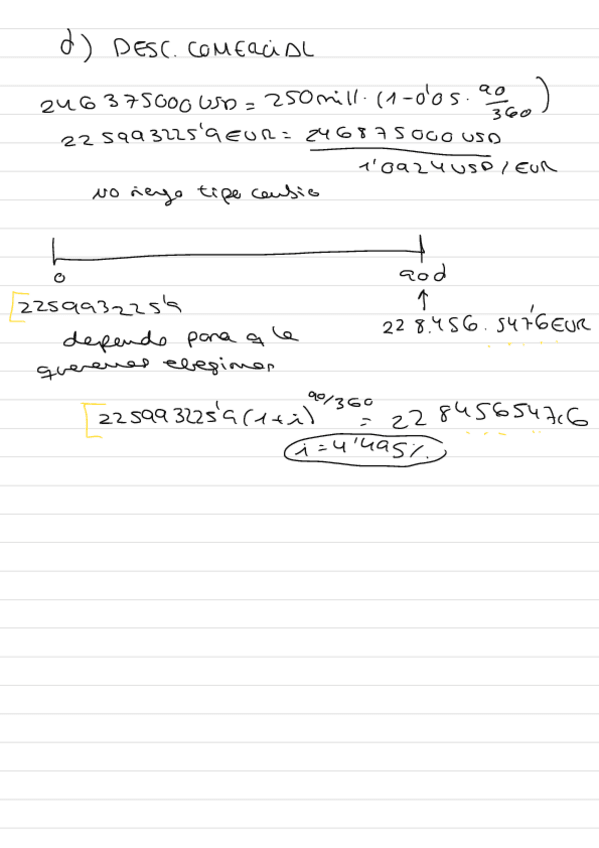 d) DESC. COMERCIAL
246 375000 USD = 250 mill. (1-0'05 · 90/360)
225993225'9 EUR = 246875000 USD / 1'0924 USD/EUR
No riesgo tipo cambio
0 90d
225993225'9 ↑
228.456.547'6 EUR
depende para q la
queremos elegimos
225993225'9 (1+i)^90/360 = 228456547,6
i = 4'495%